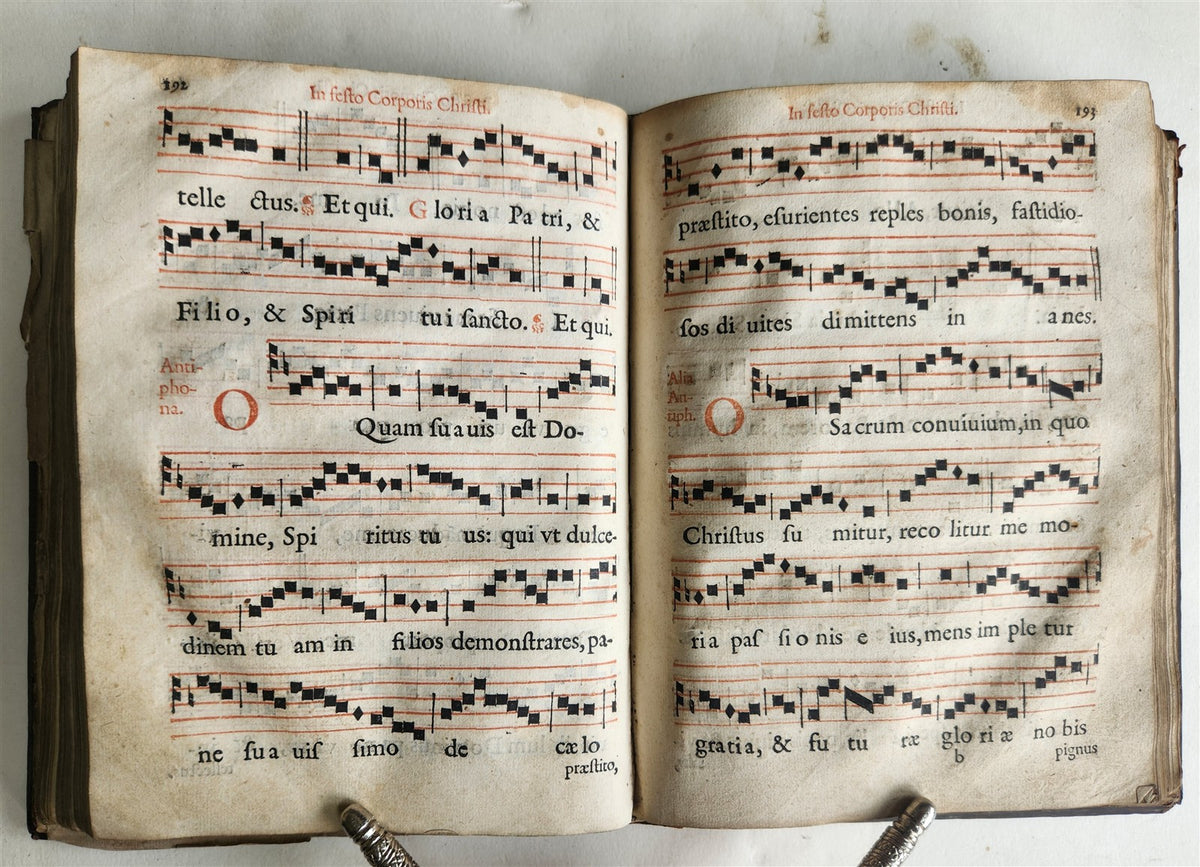 192
In festo Corporis Christi.
telle ctus. Et qui. Gloria Patri, &
Filio, & Spiri tui sancto. Et qui.
Anti-
pho-
na.
O Quam suauis est Do-
mine, Spi ritus tu us: qui vt dulce-
dinem tu am in filios demonstrares, pa-
ne sua uis simo de cælo
præstito,
In festo Corporis Christi.
193
præstito, esurientes reples bonis, fastidio-
sos di uites dimittens in anes.
Alia
An-
tiph.
O Sacrum conuiuium, in quo
Christus su mitur, reco litur me mo-
ria pas sionis e ius, mens im ple tur
gratia, & fu tu ræ gloriæ no bis
b
pignus